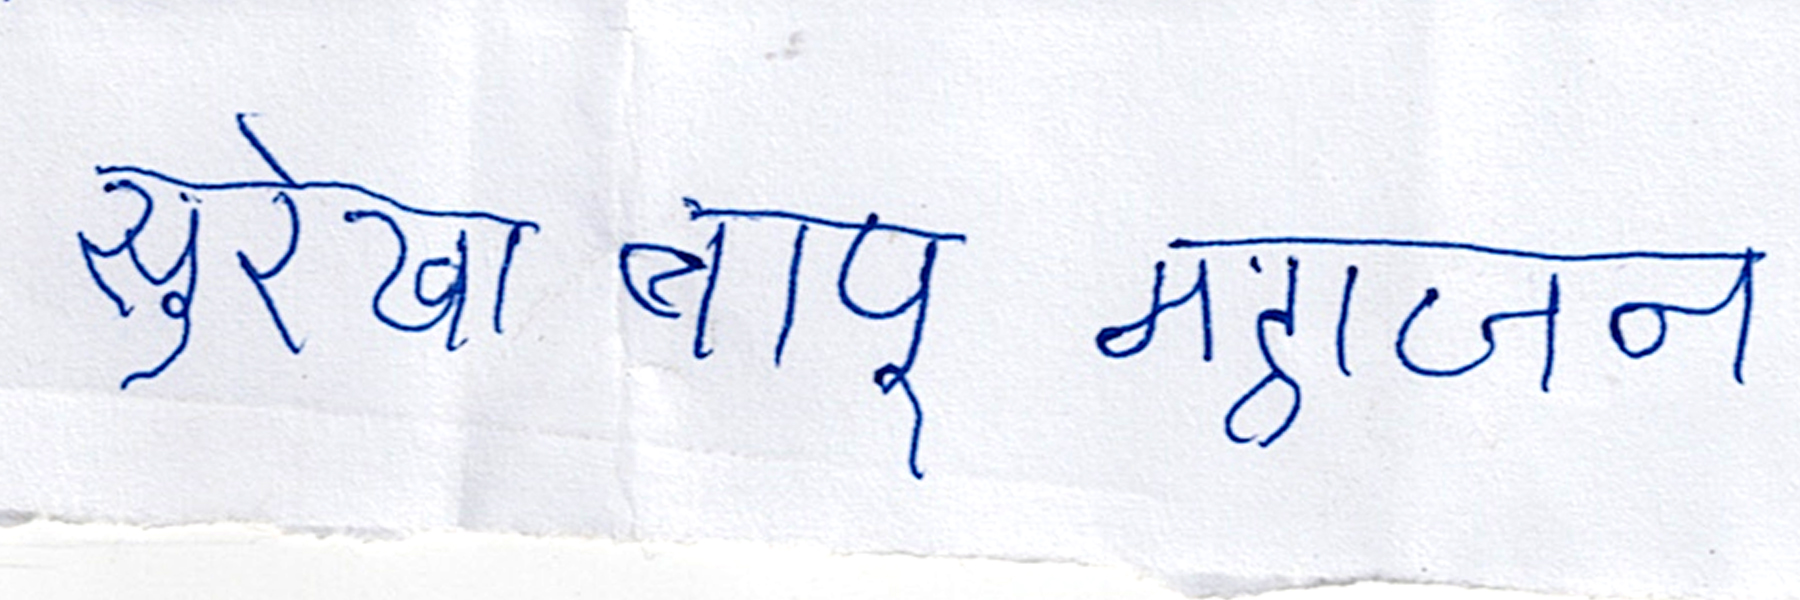 सुरेखा बापू महाजन